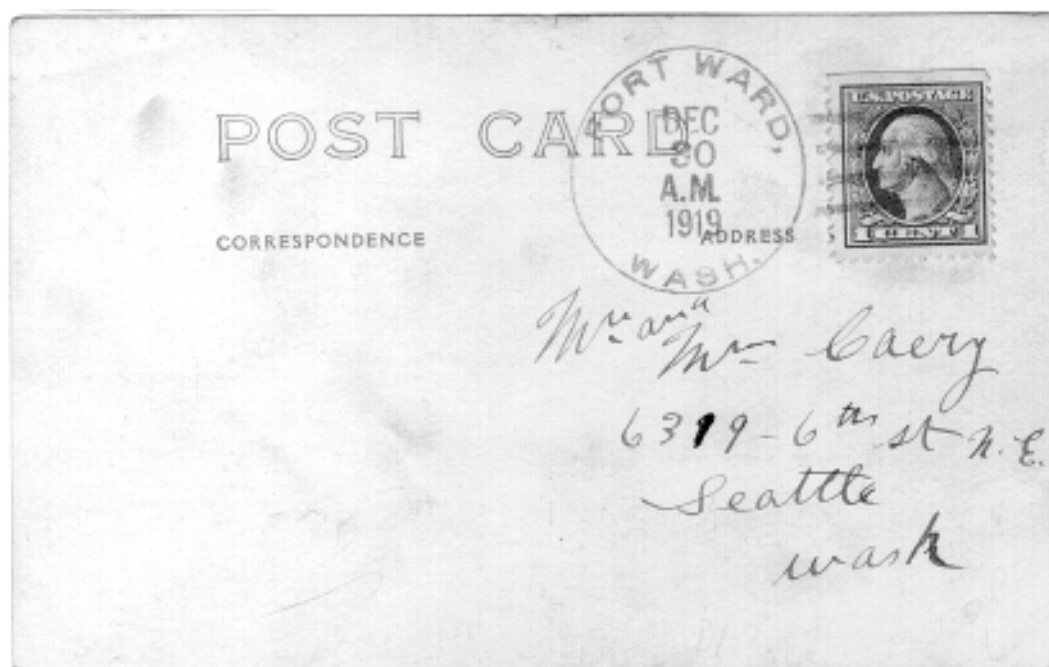 POST CARD
FORT WARD,
DEC
30
A.M.
1919
WASH.
U.S. POSTAGE
1 CENT 1
CORRESPONDENCE
ADDRESS
Mr and
Mrs Caery
6319 - 6th st N.E.
Seattle
Wash